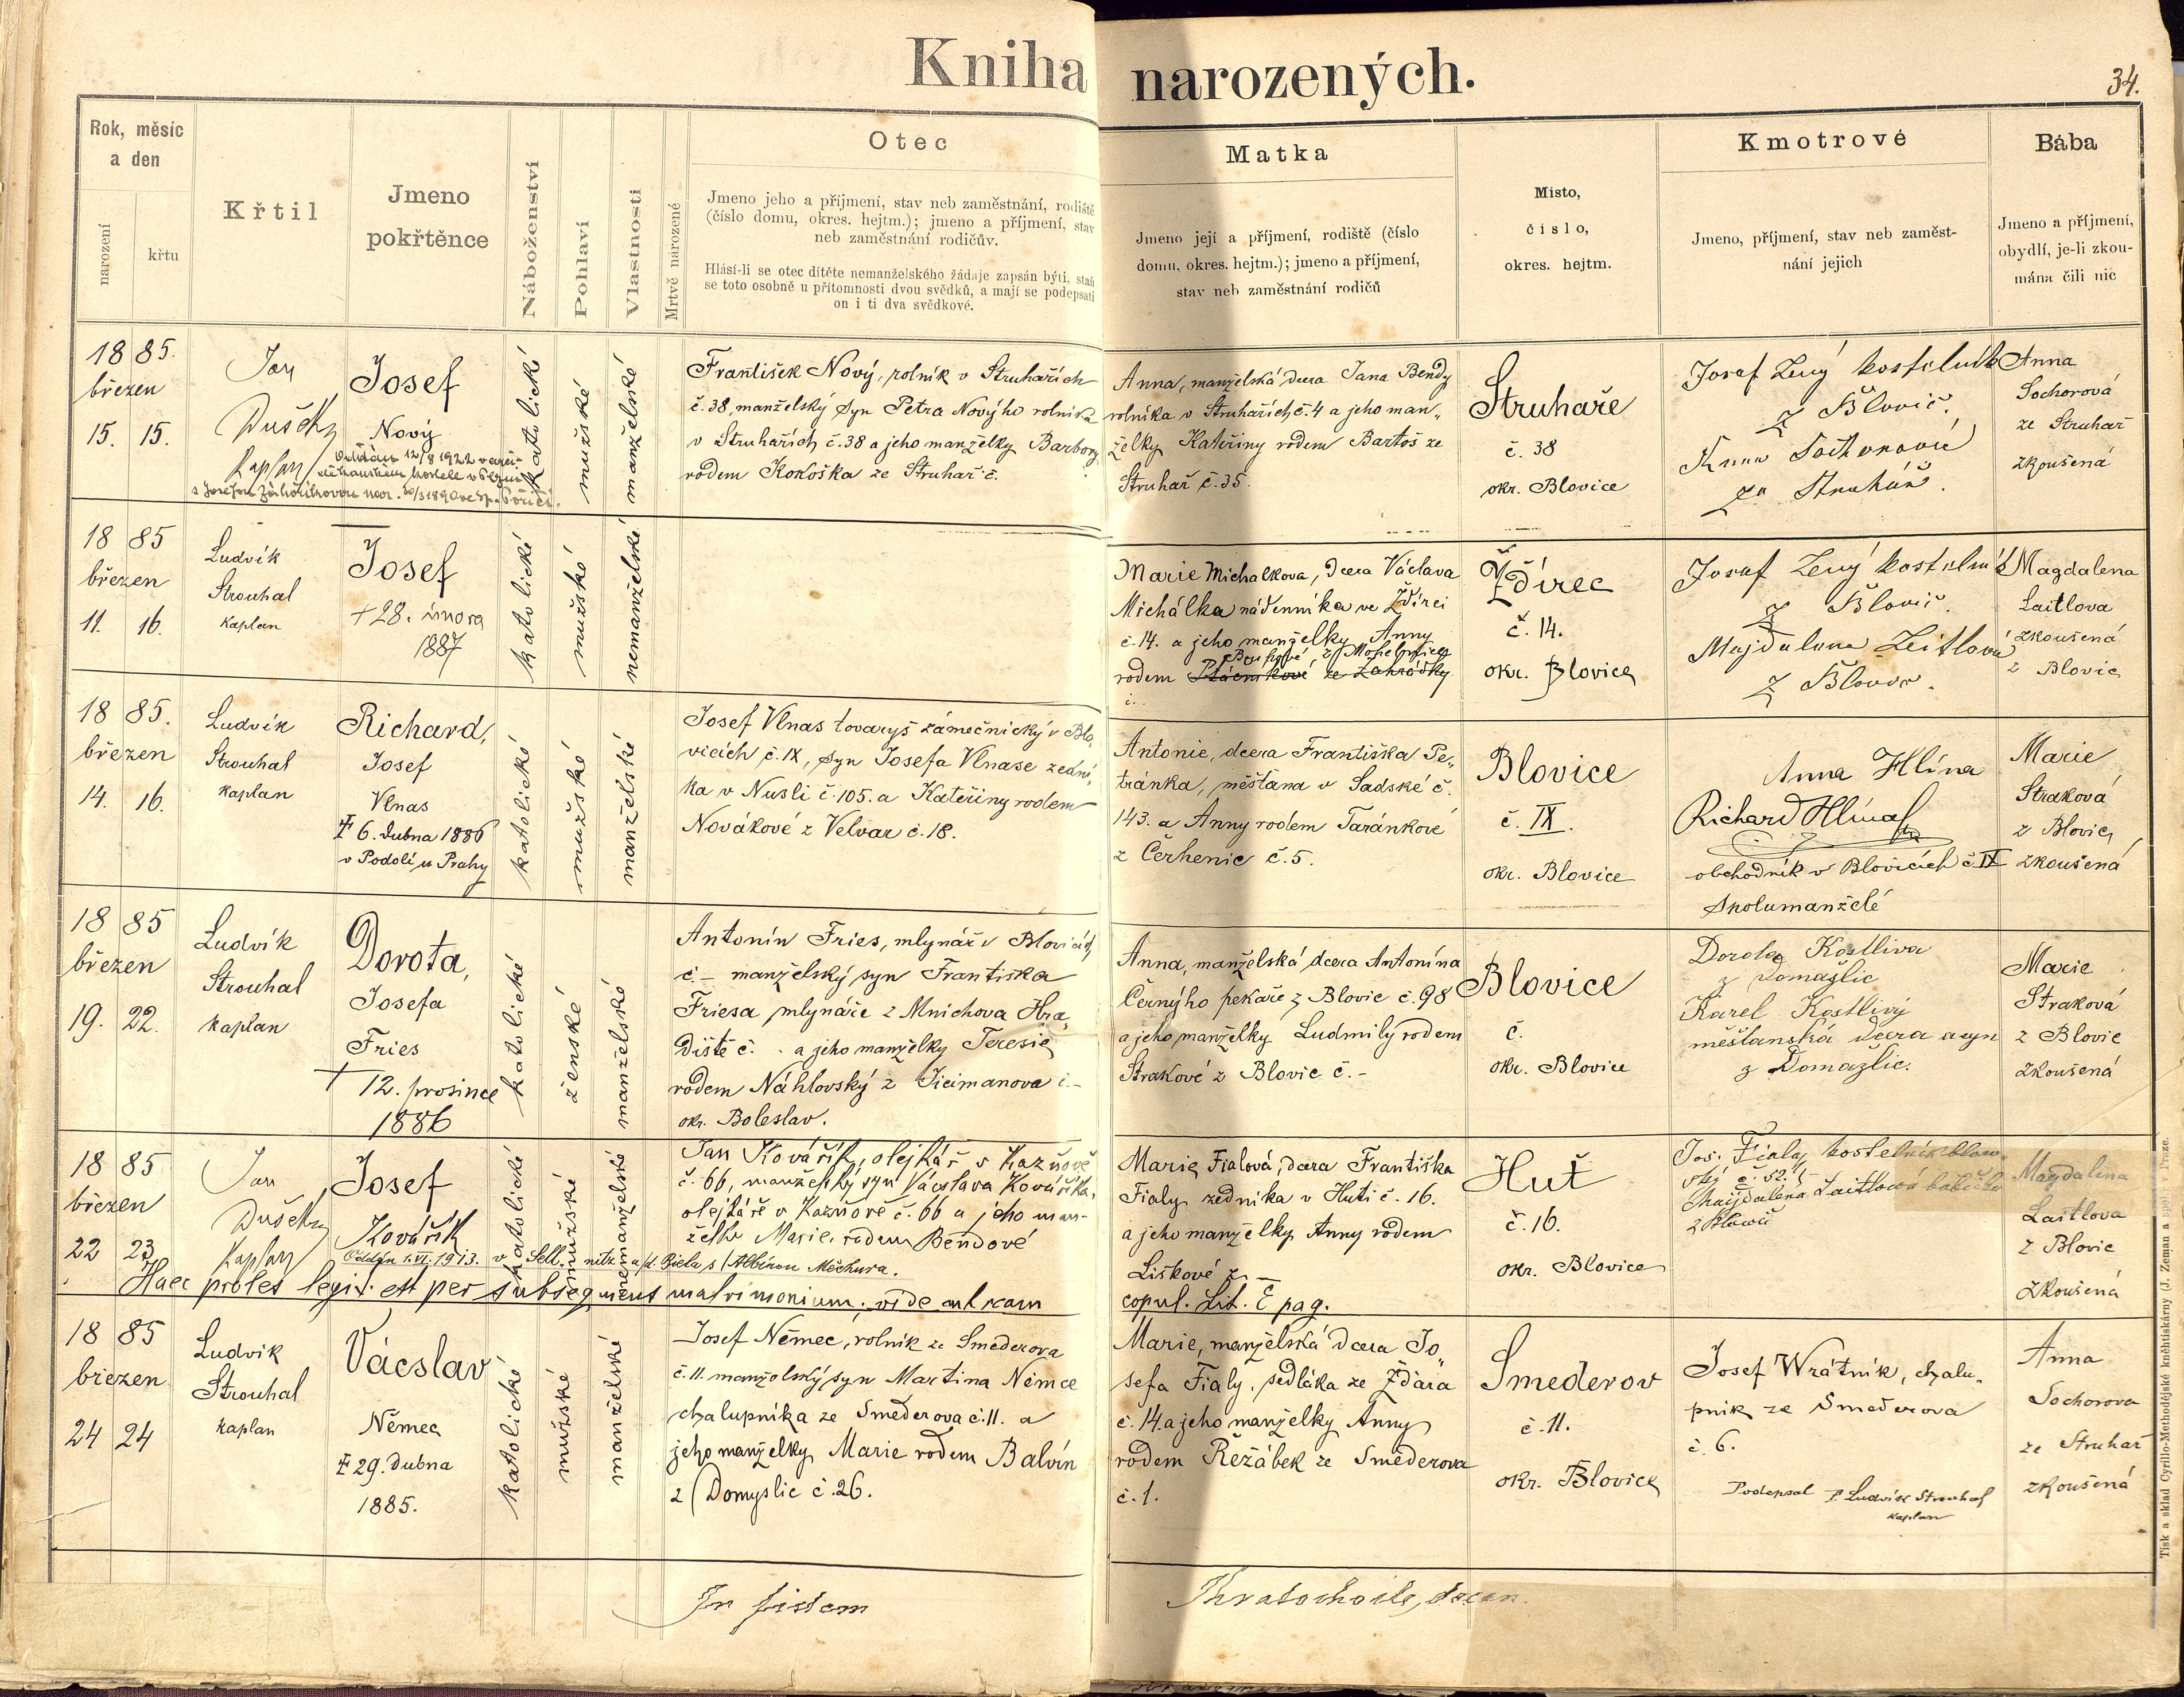 Kniha narozených.
34.
Rok, měsíc
a den
narození
křtu
Křtil
Jmeno
pokřtěnce
Náboženství
Pohlaví
Vlastnosti
Mrtvě narozené
Otec
Jmeno jeho a příjmení, stav neb zaměstnání, rodiště
(číslo domu, okres. hejtm.); jmeno a příjmení, stav
neb zaměstnání rodičův.
Hlásí-li se otec dítěte nemanželského žádaje zapsán býti, staň
se toto osobně u přítomnosti dvou svědků, a mají se podepsati
on i ti dva svědkové.
Matka
Jmeno její a příjmení, rodiště (číslo
domu, okres. hejtm.); jmeno a příjmení,
stav neb zaměstnání rodičů
Místo,
číslo,
okres. hejtm.
Kmotrové
Jmeno, příjmení, stav neb zaměst-
nání jejich
Bába
Jmeno a příjmení,
obydlí, je-li zkou-
mána čili nic
1885.
březen
15. 15.
Jan
Dušek
Kaplan
Josef
Nový
Oddán 12/8 1922 v
katolické
mužské
manželské
František Nový, rolník v Struhařích
č. 38, manželský syn Petra Nového rolníka
v Struhařích č. 38 a jeho manželky Barbory
rodem Kokoška ze Struhař č.
Anna, manželská dcera Jana Bendy
rolníka v Struhařích č. 4 a jeho man„
želky Kateřiny rodem Bartoš ze
Struhař č. 35.
Struhaře
č. 38
okr. Blovice
Josef Lený kostelník
z Blovic.
Anna Sochorová
ze Struhař.
Anna
Sochorová
ze Struhař
zkoušená
1885
březen
11. 16.
Ludvík
Strouhal
kaplan
Josef
+ 28. února
1887
katolické
mužské
nemanželské
Marie Michalkova, dcera Václava
Michálka nádenníka ve Ždírci
č. 14. a jeho manželky Anny
rodem
ze Zahrádky
č.
Ždírec
č. 14.
okr. Blovice
Josef Lený kostelník
z Blovic.
Majdalena Leitlová
z Blovic.
Magdalena
Laitlova
zkoušená
z Blovic
1885.
březen
14. 16.
Ludvík
Strouhal
kaplan
Richard,
Josef
Vlnas
‡ 6. dubna 1886
v Podolí u Prahy
katolické
mužské
manželské
Josef Vlnas tovaryš zámečnický v Blo„
vicích č. IX, syn Josefa Vlnase zední„
ka v Nusli č. 105. a Kateřiny rodem
Novákové z Velvar č. 18.
Antonie, dcera Františka Pe„
tránka, měšťana v Sadské č.
143. a Anny rodem Taránkové
z Čerhenic č. 5.
Blovice
č. IX.
okr. Blovice
Anna Hlína
Richard Hlína
obchodník v Blovicích č IX
spolumanželé
Marie
Straková
z Blovic
zkoušená
1885
březen
19. 22.
Ludvík
Strouhal
kaplan
Dorota,
Josefa
Fries
† 12. prosince
1886
katolické
ženské
manželské
Antonín Fries, mlynář v Blovicích
č – manželský syn Františka
Friesa, mlynáře z Mnichova Hra„
diště č. . a jeho manželky Teresie
rodem Náhlovský z Jicimanova č. –
okr. Boleslav.
Anna, manželská dcera Antonína
Černýho pekaře z Blovic č. 98
a jeho manželky Ludmily rodem
Strakové z Blovic č. –
Blovice
č.
okr. Blovice
Dorota Kostlivá
z Domažlic
Karel Kostlivý
měšťanská dcera a syn
z Domažlic.
Marie
Straková
z Blovic
zkoušená
1885
březen
22 23
Jan
Dušek
Kaplan
Josef
Kovářík
Oddán 1. VI. 1913. v Sellnitz a/d. Biela s Albinou Měchura.
katolické
mužské
nemanželské
Jan Kovářík, olejkář v Kaznově
č. 66, manželský syn Václava Kováříka,
olejkáře v Kaznově č. 66 a jeho man-
želky Marie, rodem Bendové
Marie Fialová, dcera Františka
Fialy zedníka v Huti č. 16.
a jeho manželky Anny rodem
Liškové z –
Huť
č. 16.
okr. Blovice
Jos. Fiala, kostelník blov-
ský č. 52.
Majdaléna Laitlová babička
z Blovic
Magdalena
Laitlova
z Blovic
zkoušená
Haec proles legit. est per subsequens matrimonium; vide
copul. Lit. E pag.
1885
březen
24 24
Ludvík
Strouhal
kaplan
Václav
Němec
‡ 29. dubna
1885.
katolické
mužské
manželské
Josef Němec, rolník ze Směderova
č. 11. manželský syn Martina Němce
chalupníka ze Směderova č. 11. a
jeho manželky Marie rodem Balvín
z Domyslic č. 26.
Marie, manželská dcera Jo„
sefa Fialy, sedláka ze Žďára
č. 14 a jeho manželky Anny
rodem Řežábek ze Směderova
č. 1.
Směderov
č. 11.
okr. Blovice
Josef Wrátník, chalu„
pník ze Směderova
č. 6.
Podepsal P. Ludvík Strouhal
kaplan
Anna
Sochorova
ze Struhař
zkoušená
In fidem
Tisk a sklad Cyrillo-Methodějské knihtiskárny (J. Zeman a spol.) v Praze.